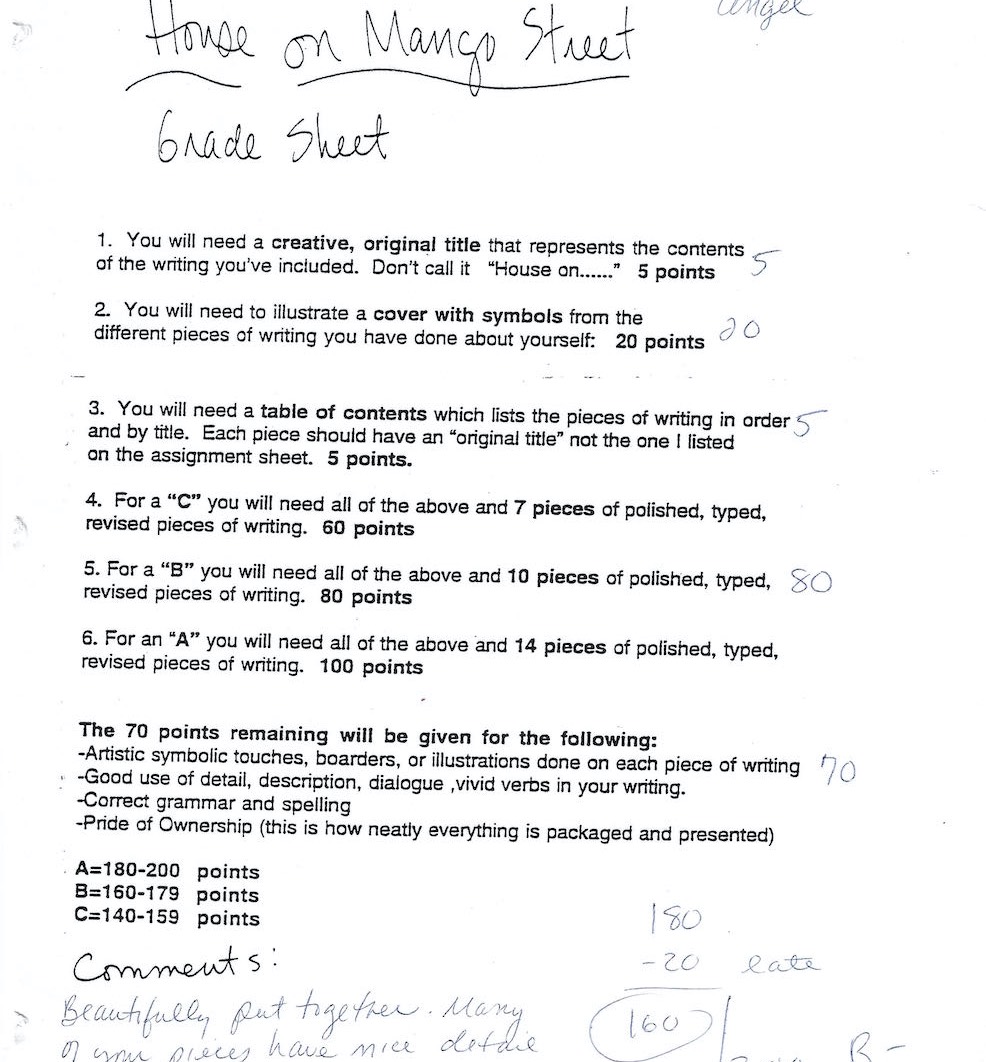 angel
House on Mango Street
Grade Sheet
1. You will need a creative, original title that represents the contents 5
of the writing you've included. Don't call it "House on......" 5 points
2. You will need to illustrate a cover with symbols from the
different pieces of writing you have done about yourself: 20 points 20
3. You will need a table of contents which lists the pieces of writing in order 5
and by title. Each piece should have an "original title" not the one I listed
on the assignment sheet. 5 points.
4. For a "C" you will need all of the above and 7 pieces of polished, typed,
revised pieces of writing. 60 points
5. For a "B" you will need all of the above and 10 pieces of polished, typed, 80
revised pieces of writing. 80 points
6. For an "A" you will need all of the above and 14 pieces of polished, typed,
revised pieces of writing. 100 points
The 70 points remaining will be given for the following:
-Artistic symbolic touches, boarders, or illustrations done on each piece of writing 70
-Good use of detail, description, dialogue ,vivid verbs in your writing.
-Correct grammar and spelling
-Pride of Ownership (this is how neatly everything is packaged and presented)
A=180-200 points
B=160-179 points
C=140-159 points
180
-20 late
160
Comments:
Beautifully put together. Many
of your pieces have nice detail
B-